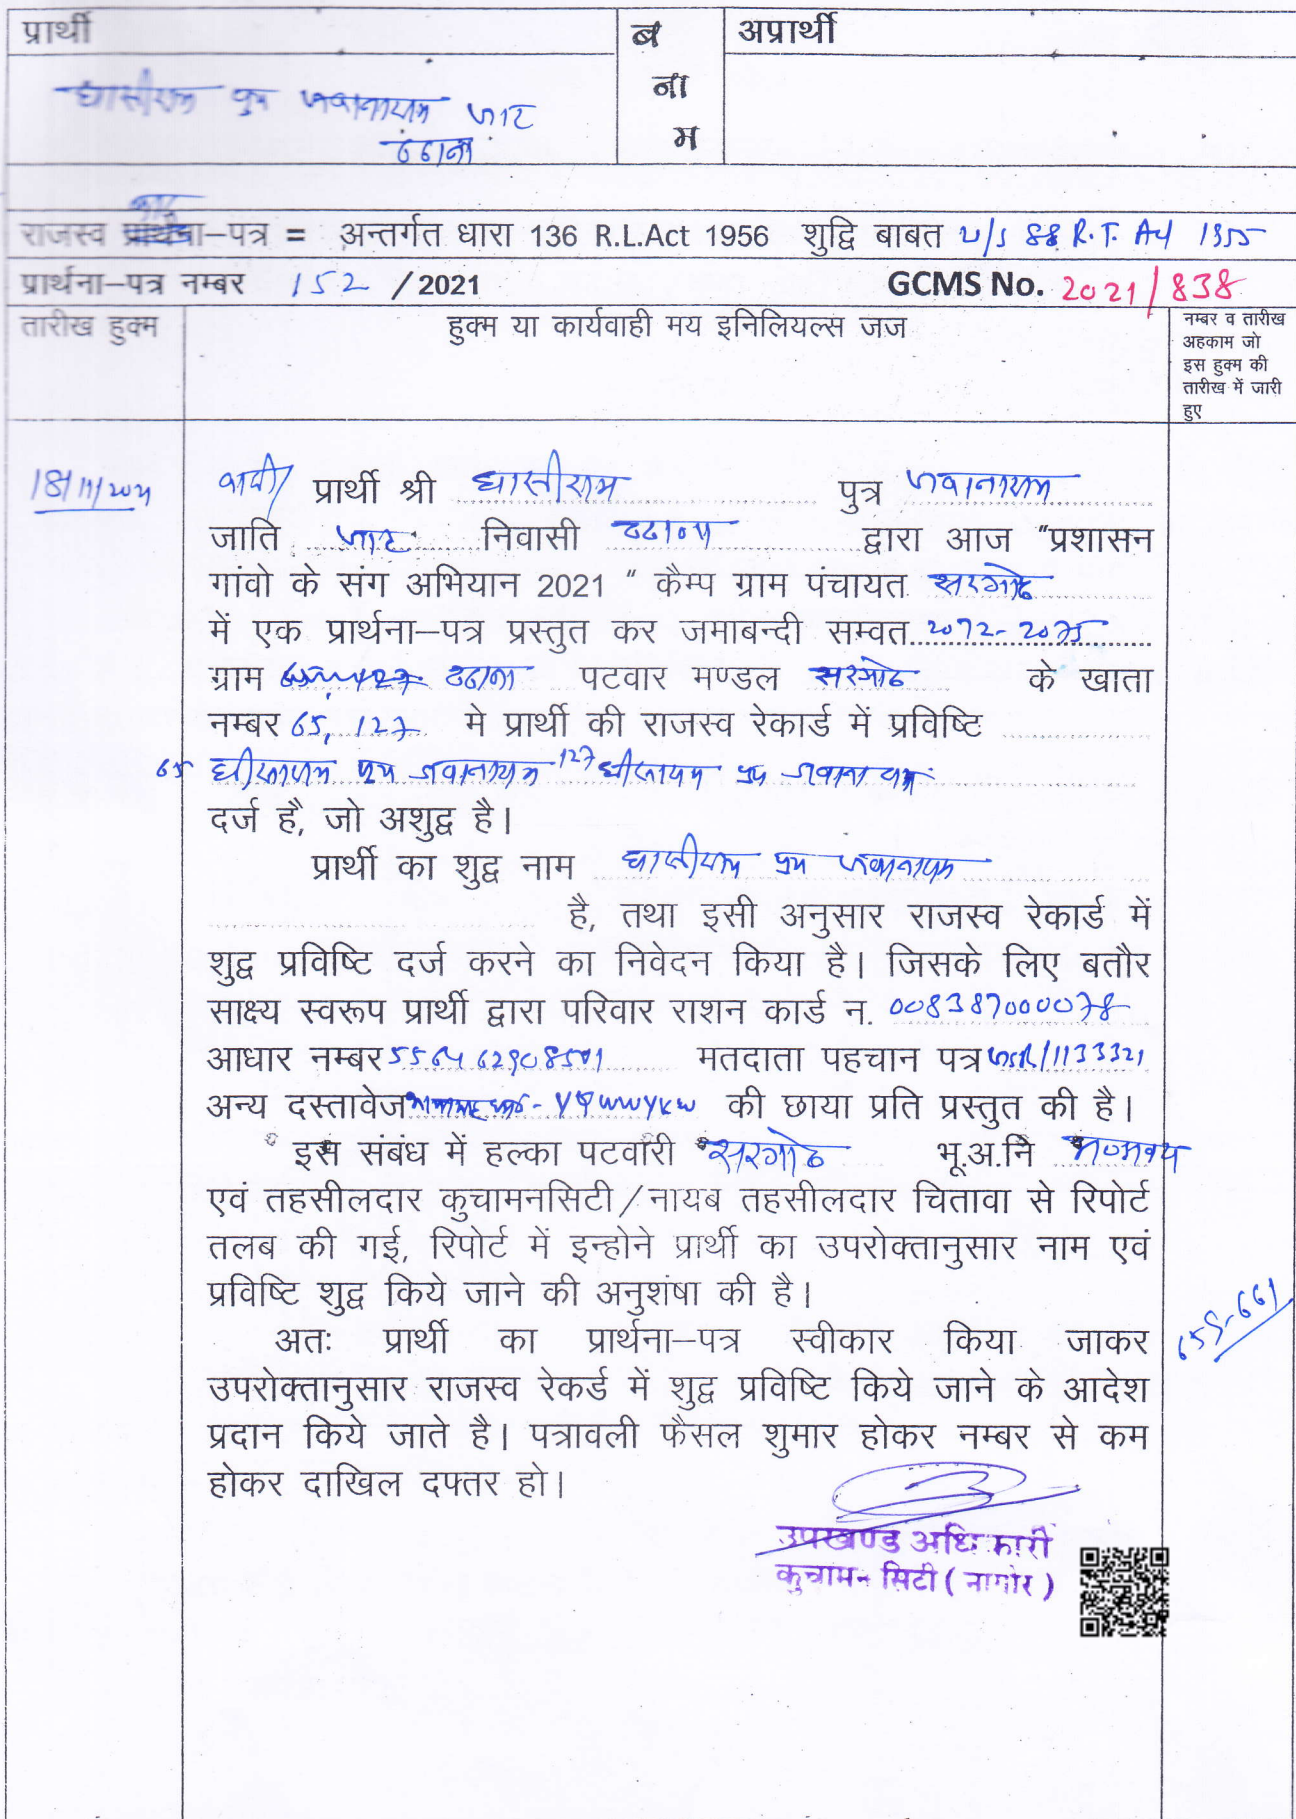 प्रार्थी
ब
ना
म
अप्रार्थी
घासीराम पुत्र जवानाराम जाट
ढढाना
राजस्व प्रार्थना–पत्र = अन्तर्गत धारा 136 R.L.Act 1956 शुद्वि बाबत u/s 88 R.T. Act 1955
प्रार्थना–पत्र नम्बर 152 /2021
GCMS No. 2021/838
तारीख हुक्म
हुक्म या कार्यवाही मय इनिलियल्स जज
नम्बर व तारीख
अहकाम जो
इस हुक्म की
तारीख में जारी
हुए
18/11/2021
प्रार्थी श्री घासीराम पुत्र जवानाराम
जाति जाट निवासी ढढाना द्वारा आज "प्रशासन
गांवो के संग अभियान 2021 " कैम्प ग्राम पंचायत सरगोठ
में एक प्रार्थना–पत्र प्रस्तुत कर जमाबन्दी सम्वत 2072-2075
ग्राम ढढाना पटवार मण्डल सरगोठ के खाता
नम्बर 65, 127 मे प्रार्थी की राजस्व रेकार्ड में प्रविष्टि
65 पुत्र जवानाराम 127 पुत्र जवानाराम
दर्ज है, जो अशुद्व है।
प्रार्थी का शुद्व नाम घासीराम पुत्र जवानाराम
है, तथा इसी अनुसार राजस्व रेकार्ड में
शुद्व प्रविष्टि दर्ज करने का निवेदन किया है। जिसके लिए बतौर
साक्ष्य स्वरूप प्रार्थी द्वारा परिवार राशन कार्ड न. 008387000078
आधार नम्बर मतदाता पहचान पत्र
अन्य दस्तावेज की छाया प्रति प्रस्तुत की है।
इस संबंध में हल्का पटवारी सरगोठ भू.अ.नि
एवं तहसीलदार कुचामनसिटी/नायब तहसीलदार चितावा से रिपोर्ट
तलब की गई, रिपोर्ट में इन्होने प्रार्थी का उपरोक्तानुसार नाम एवं
प्रविष्टि शुद्व किये जाने की अनुशंषा की है।
अतः प्रार्थी का प्रार्थना–पत्र स्वीकार किया जाकर
उपरोक्तानुसार राजस्व रेकर्ड में शुद्व प्रविष्टि किये जाने के आदेश
प्रदान किये जाते है। पत्रावली फैसल शुमार होकर नम्बर से कम
होकर दाखिल दफ्तर हो।
659-661
उपखण्ड अधिकारी
कुचामन सिटी (नागोर)